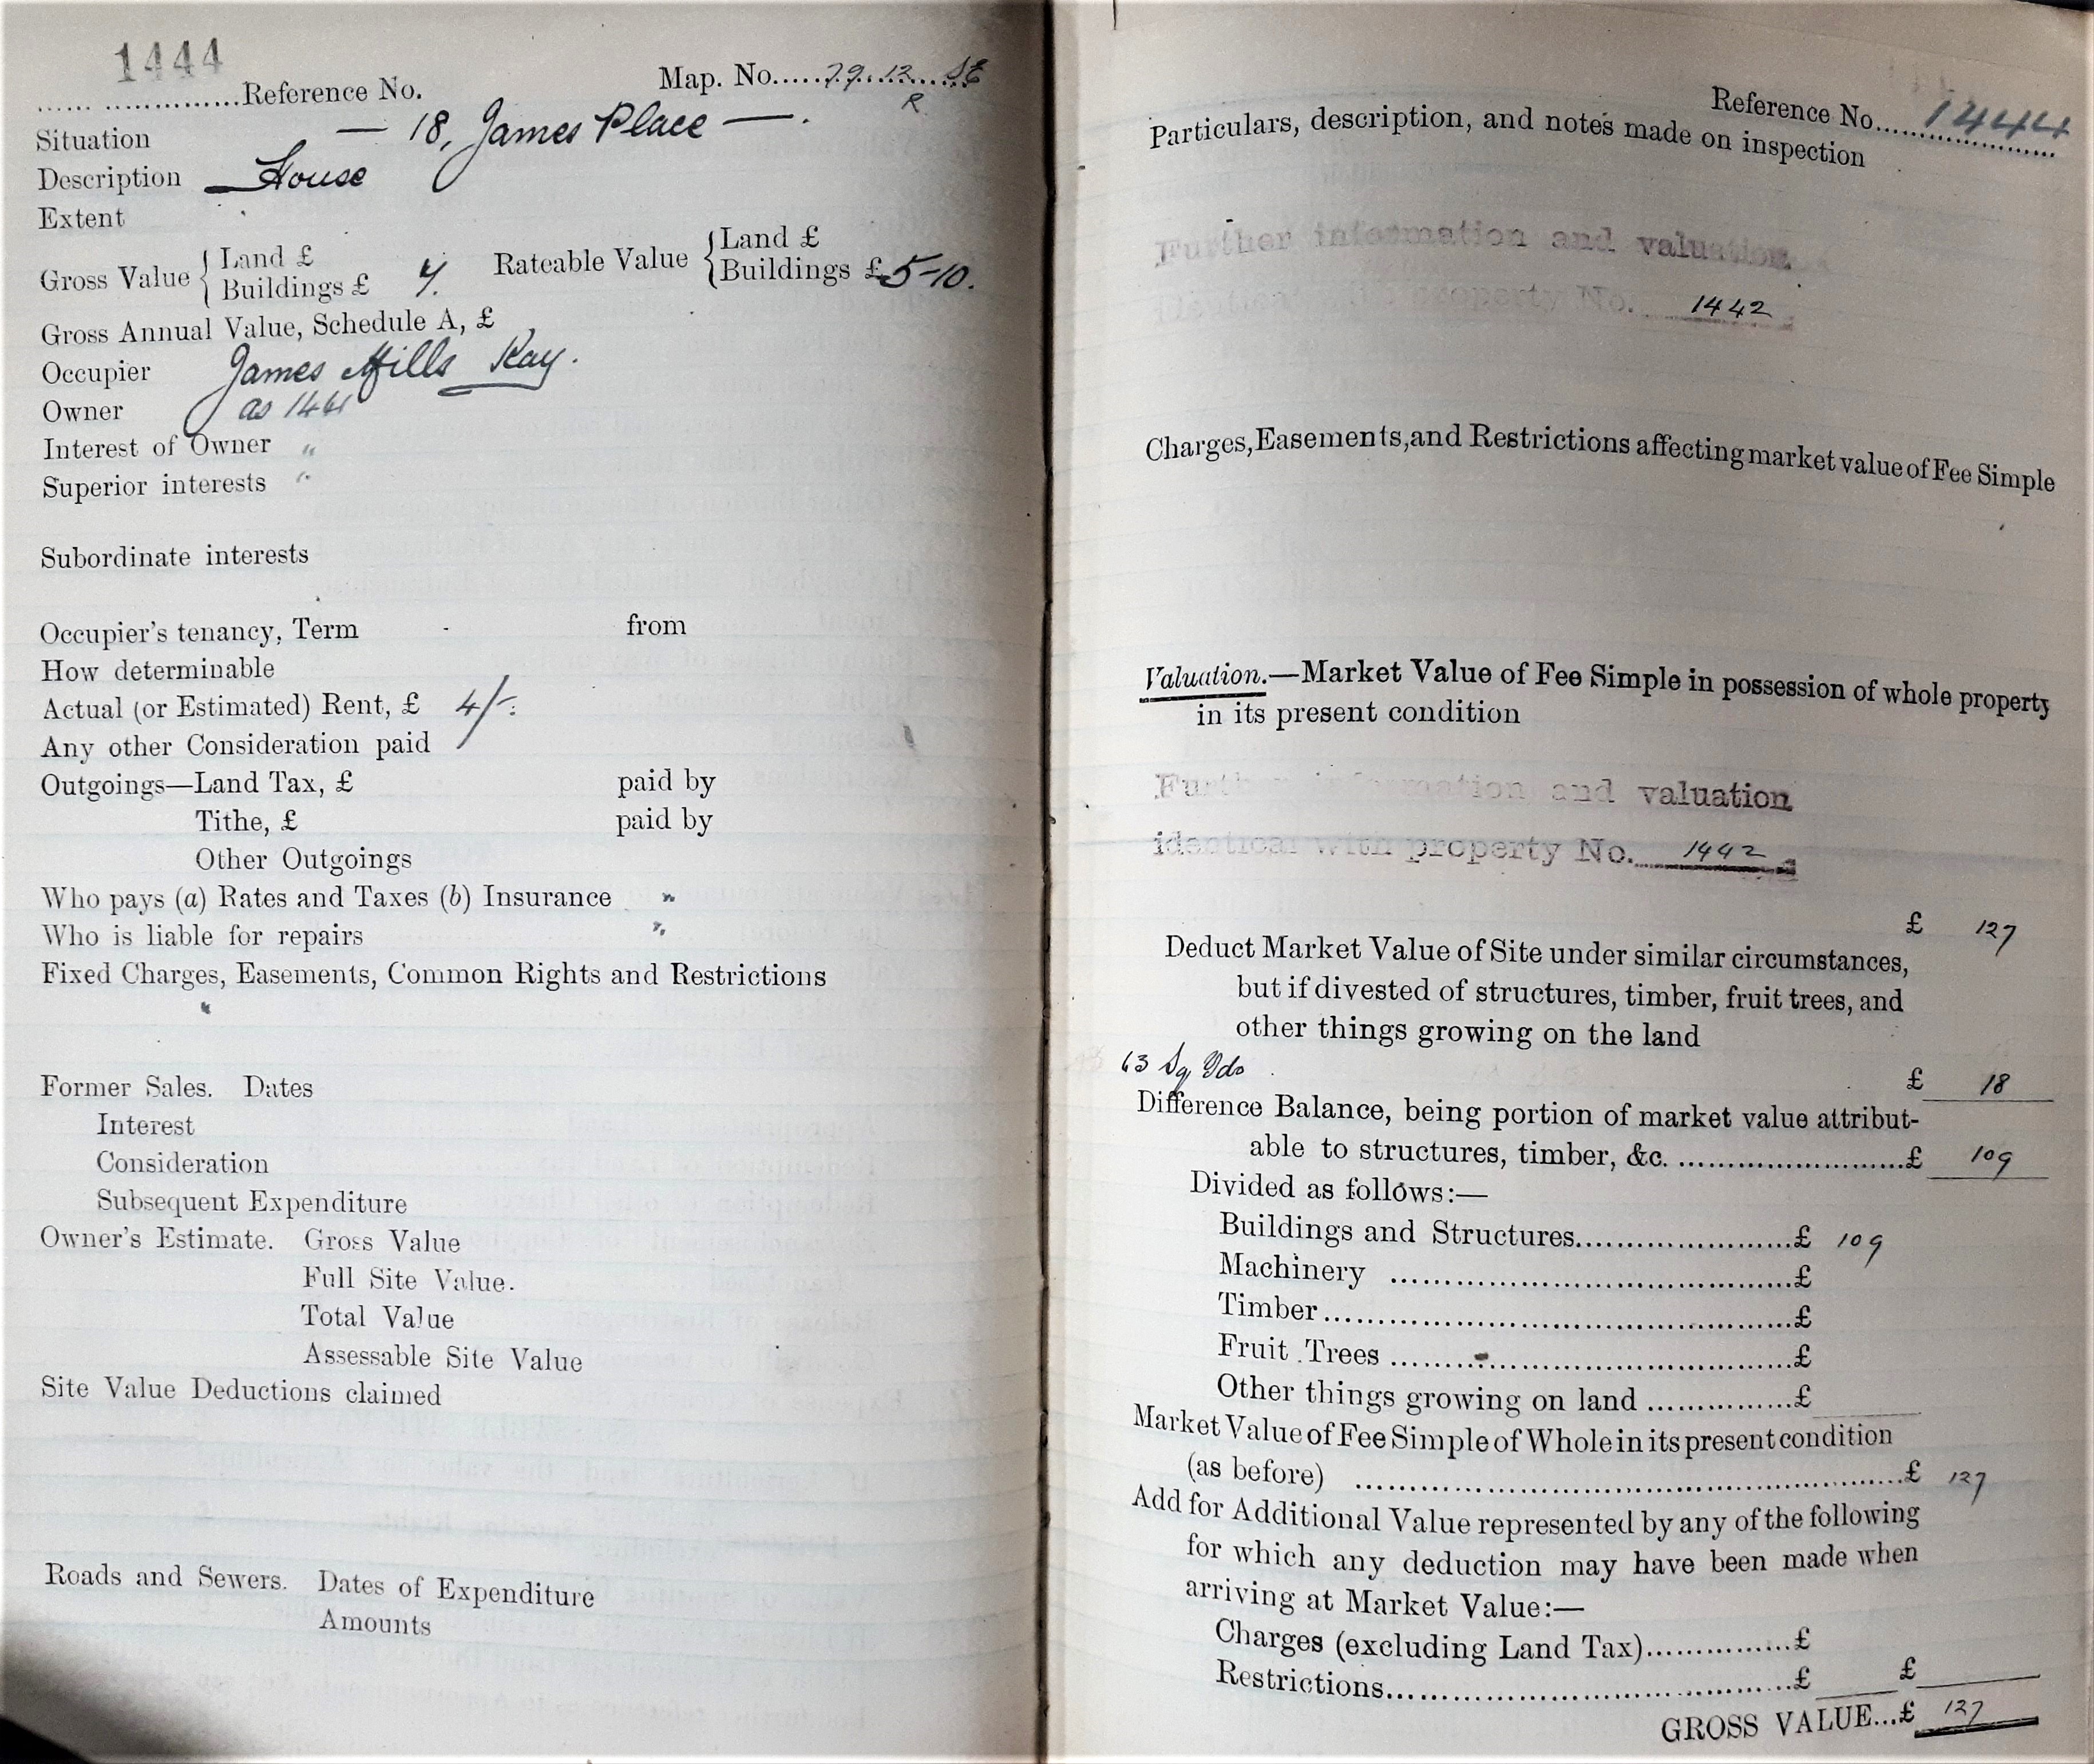 1444
...... ...............Reference No.
Map. No.....79.12....SE
R
Situation — 18, James Place —.
Description House
Extent
Gross Value { Land £
Buildings £ 7.
Rateable Value { Land £
Buildings £ 5-10.
Gross Annual Value, Schedule A, £
Occupier James Mills Kay.
Owner as 1441
Interest of Owner "
Superior interests "
Subordinate interests
Occupier's tenancy, Term from
How determinable
Actual (or Estimated) Rent, £ 4/-:
Any other Consideration paid
Outgoings—Land Tax, £ paid by
Tithe, £ paid by
Other Outgoings
Who pays (a) Rates and Taxes (b) Insurance "
Who is liable for repairs "
Fixed Charges, Easements, Common Rights and Restrictions
"
Former Sales. Dates
Interest
Consideration
Subsequent Expenditure
Owner's Estimate. Gross Value
Full Site Value.
Total Value
Assessable Site Value
Site Value Deductions claimed
Roads and Sewers. Dates of Expenditure
Amounts
Reference No. 1444
Particulars, description, and notes made on inspection
Further information and valuation
identical with property No. 1442
Charges, Easements, and Restrictions affecting market value of Fee Simple
Valuation.—Market Value of Fee Simple in possession of whole property
in its present condition
Further information and valuation
identical with property No. 1442
£ 127
Deduct Market Value of Site under similar circumstances,
but if divested of structures, timber, fruit trees, and
other things growing on the land
63 Sq Yds
£ 18
Difference Balance, being portion of market value attribut-
able to structures, timber, &c. ........................£ 109
Divided as follows:—
Buildings and Structures.......................£ 109
Machinery ..........................................£
Timber................................................£
Fruit Trees ..........................................£
Other things growing on land ................£
Market Value of Fee Simple of Whole in its present condition
(as before) ..........................................................£ 127
Add for Additional Value represented by any of the following
for which any deduction may have been made when
arriving at Market Value:—
Charges (excluding Land Tax)...............£
Restrictions..........................................£ £
GROSS VALUE...£ 127